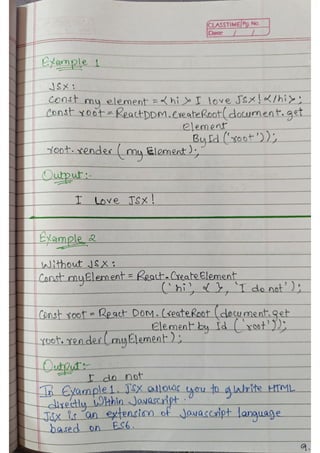 CLASSTIME Pg. No.
Date / /
Example 1
JSX:
Const my element = <hi> I love JSX! </hi>;
Const root = ReactDOM.CreateRoot(document.get
Element
By Id ('root'));
root.render (my Element);
Output:-
I Love JSX!
Example 2
Without JSX:
Const myElement = React.CreateElement
('hi', { }, 'I do not');
Const root = React DOM.CreateRoot (document.get
Element by Id ('root'));
root.render (myElement);
Output:-
I do not
In Example 1. JSX allows you to write HTML
directly Within Javascript.
JSX is an extension of Javascript language
based on ES6.
9.